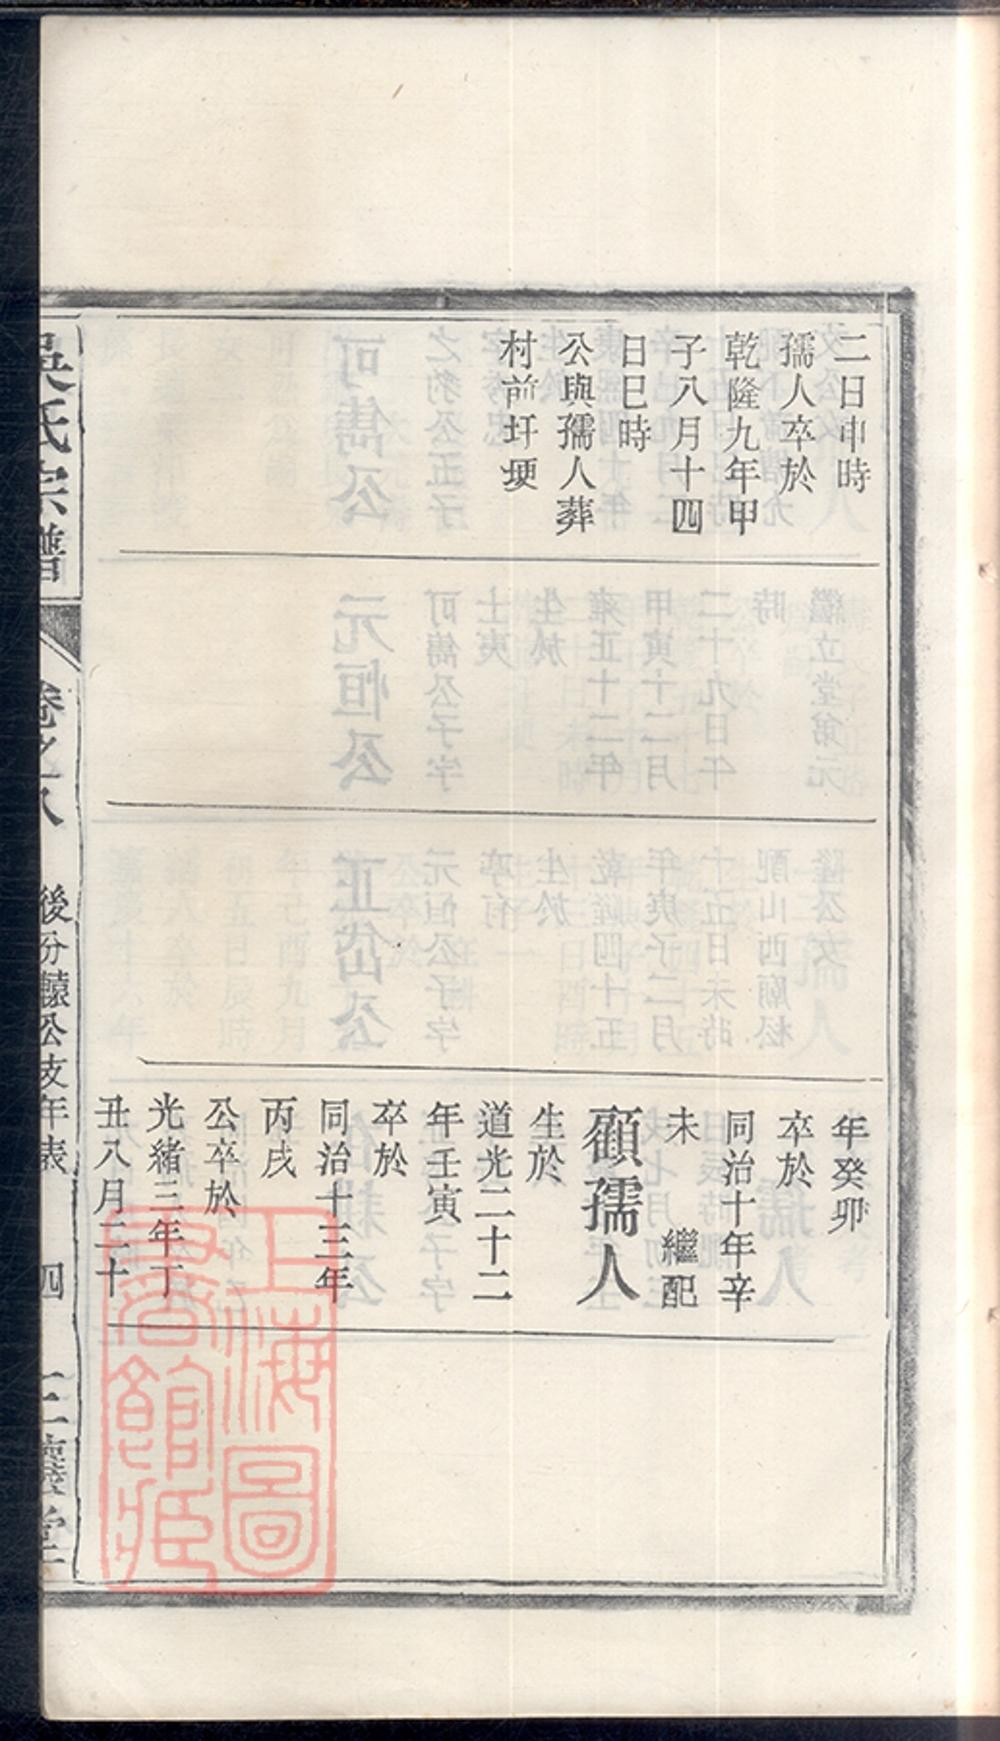 二日申時
孺人卒於
乾隆九年甲
子八月十四
日巳時
公與孺人葬
村前圩埂
年癸卯
卒於
同治十年辛
未　繼配
顧孺人
生於
道光二十二
年壬寅
卒於
同治十三年
丙戌
公卒於
光緒三年丁
丑八月二十
吳氏宗譜
卷之八
後分轅公支年表
四
三讓堂
上海圖
書館藏